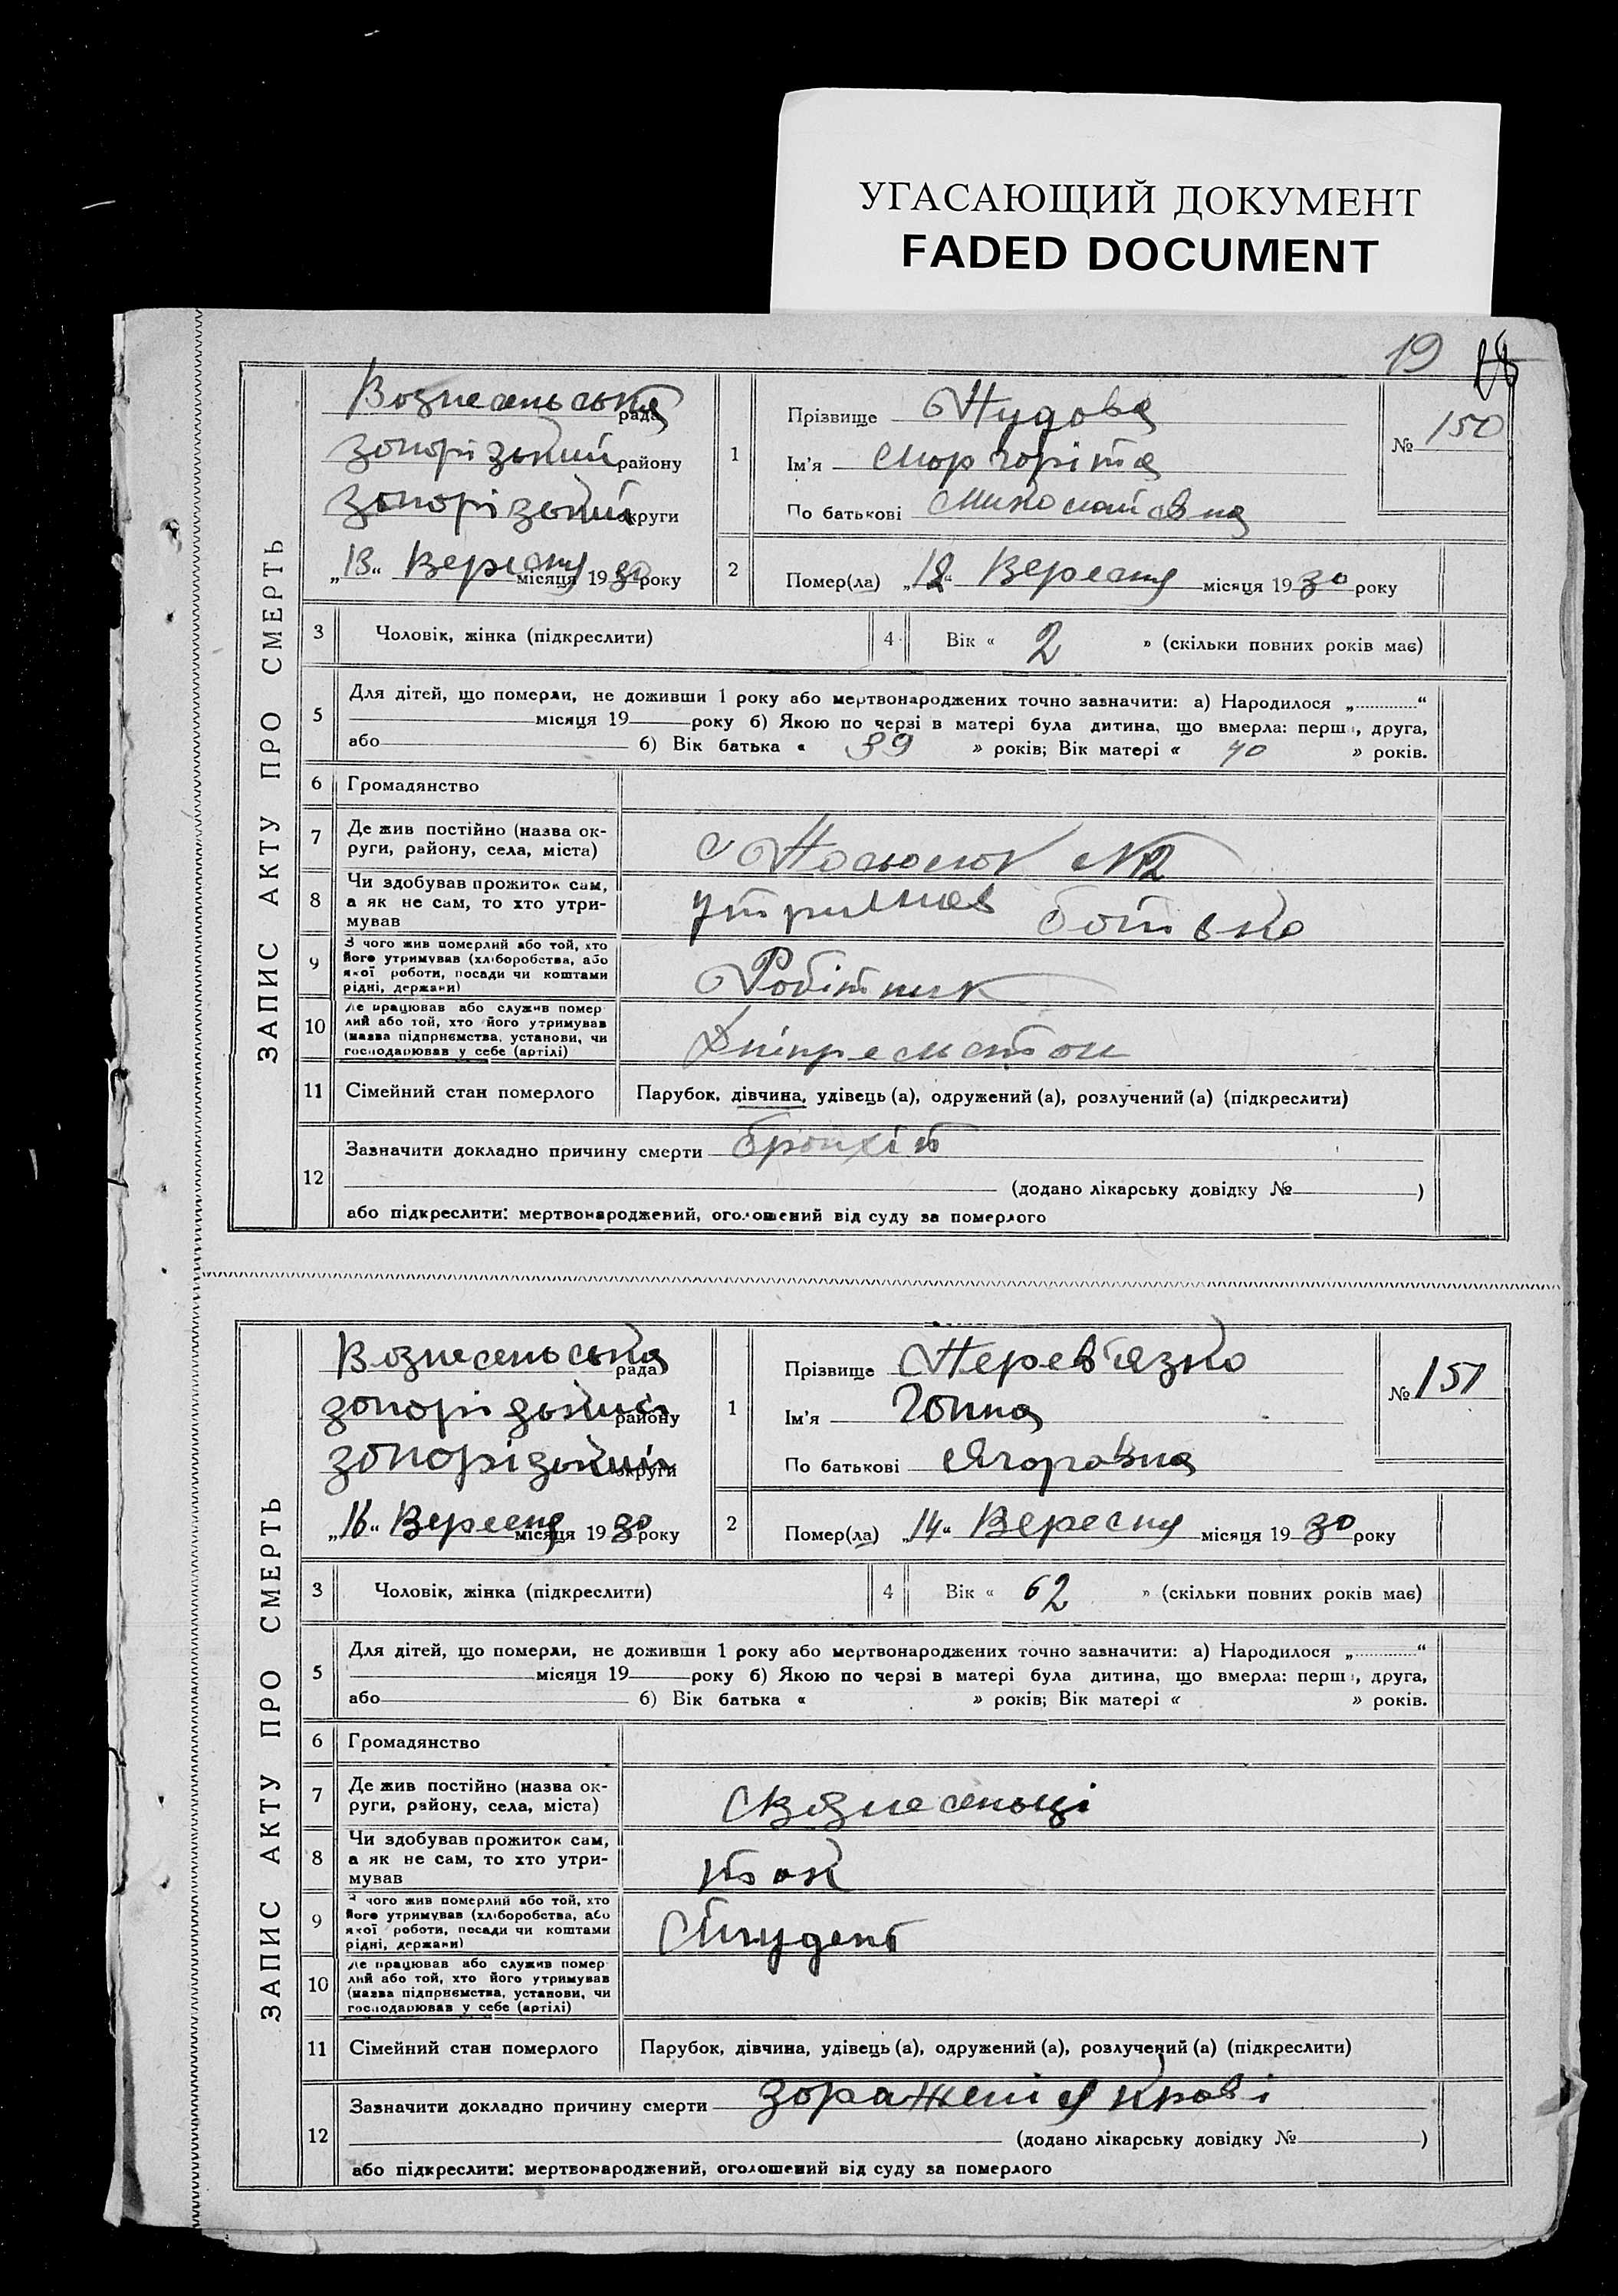 УГАСАЮЩИЙ ДОКУМЕНТ
FADED DOCUMENT
19
ЗАПИС АКТУ ПРО СМЕРТЬ
Вознесенська рада
запорізький району
Запорізький округи
„13“ Вересня місяця 1930 року
1
Прізвище Пудова
Ім'я Маргаріта
По батькові Миколаївна
№ 150
2
Помер(ла) „12“ Вересня місяця 1930 року
3 Чоловік, жінка (підкреслити)
4 Вік « 2 » (скільки повних років має)
5 Для дітей, що померли, не доживши 1 року або мертвонароджених точно зазначити: а) Народилося „............“
місяця 19 року б) Якою по черзі в матері була дитина, що вмерла: перша, друга,
або б) Вік батька « 39 » років; Вік матері « 40 » років.
6 Громадянство
7 Де жив постійно (назва ок-
руги, району, села, міста)
с Посьолок №2
8 Чи здобував прожиток сам,
а як не сам, то хто утри-
мував
утримав батько
9 З чого жив померлий або той, хто
його утримував (хліборобства, або
якої роботи, посади чи коштами
рідні, держави)
Робітник
10 Де працював або служив помер
лий або той, хто його утримував
(назва підприємства, установи, чи
господарював у себе (артілі)
11 Сімейний стан померлого Парубок, дівчина, удівець (а), одружений (а), розлучений (а) (підкреслити)
12 Зазначити докладно причину смерти бронхіт
(додано лікарську довідку № )
або підкреслити: мертвонароджений, оголошений від суду за померлого
ЗАПИС АКТУ ПРО СМЕРТЬ
Вознесенська рада
запорізький району
запорізький округи
„16“ Вересня місяця 1930 року
1
Прізвище Перев'язко
Ім'я Ганна
По батькові Ягоровна
№ 151
2
Помер(ла) „14“ Вересня місяця 1930 року
3 Чоловік, жінка (підкреслити)
4 Вік « 62 » (скільки повних років має)
5 Для дітей, що померли, не доживши 1 року або мертвонароджених точно зазначити: а) Народилося „............“
місяця 19 року б) Якою по черзі в матері була дитина, що вмерла: перша, друга,
або б) Вік батька « » років; Вік матері « » років.
6 Громадянство
7 Де жив постійно (назва ок-
руги, району, села, міста)
с Вознесенці
8 Чи здобував прожиток сам,
а як не сам, то хто утри-
мував
9 З чого жив померлий або той, хто
його утримував (хліборобства, або
якої роботи, посади чи коштами
рідні, держави)
Студент
10 Де працював або служив помер
лий або той, хто його утримував
(назва підприємства, установи, чи
господарював у себе (артілі)
11 Сімейний стан померлого Парубок, дівчина, удівець (а), одружений (а), розлучений (а) (підкреслити)
12 Зазначити докладно причину смерти зораженія крові
(додано лікарську довідку № )
або підкреслити: мертвонароджений, оголошений від суду за померлого